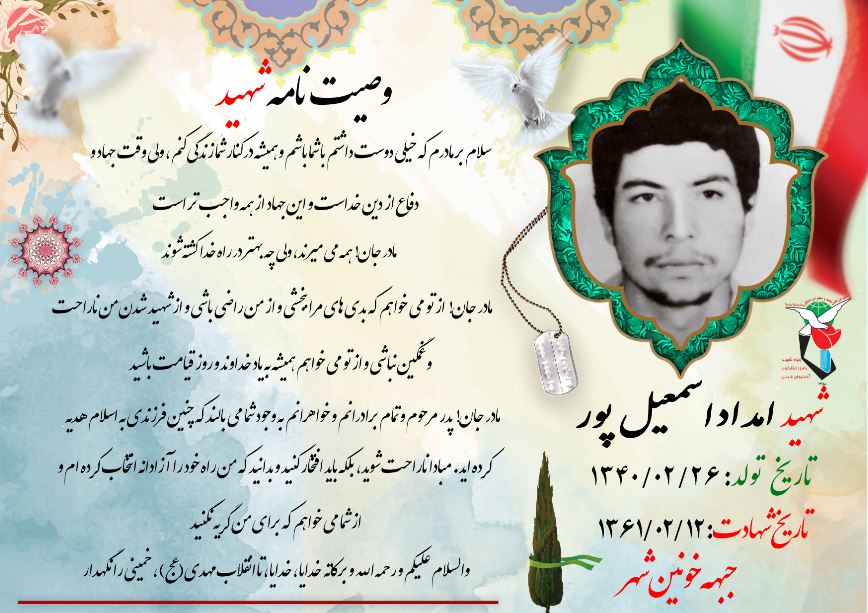 وصیت نامه شهید
سلام بر مادرم که خیلی دوست داشتم با شما باشم و همیشه در کنار شما زندگی کنم، ولی وقت جهاد و
دفاع از دین خداست و این جهاد از همه واجب تر است
مادر جان! همه می میرند، ولی چه بهتر در راه خدا کشته شوند
مادر جان! از تو می خواهم که بدی های مرا ببخشی و از من راضی باشی و از شهید شدن من ناراحت
و غمگین نباشی و از تو می خواهم همیشه به یاد خداوند و روز قیامت باشید
مادر جان! پدر مرحوم و تمام برادرانم و خواهرانم به وجود شما می بالند که چنین فرزندی به اسلام هدیه
کرده اید. مبادا ناراحت شوید، بلکه باید افتخار کنید و بدانید که من راه خود را آزادانه انتخاب کرده ام و
از شما می خواهم که برای من گریه نکنید
والسلام علیکم و رحمه الله و برکاته خدایا، خدایا، تا انقلاب مهدی (عج)، خمینی را نگهدار
شهید امداد اسمعیل پور
تاریخ تولد: ۱۳۴۰/۰۲/۲۶
تاریخ شهادت: ۱۳۶۱/۰۲/۱۲
جبهه خونین شهر